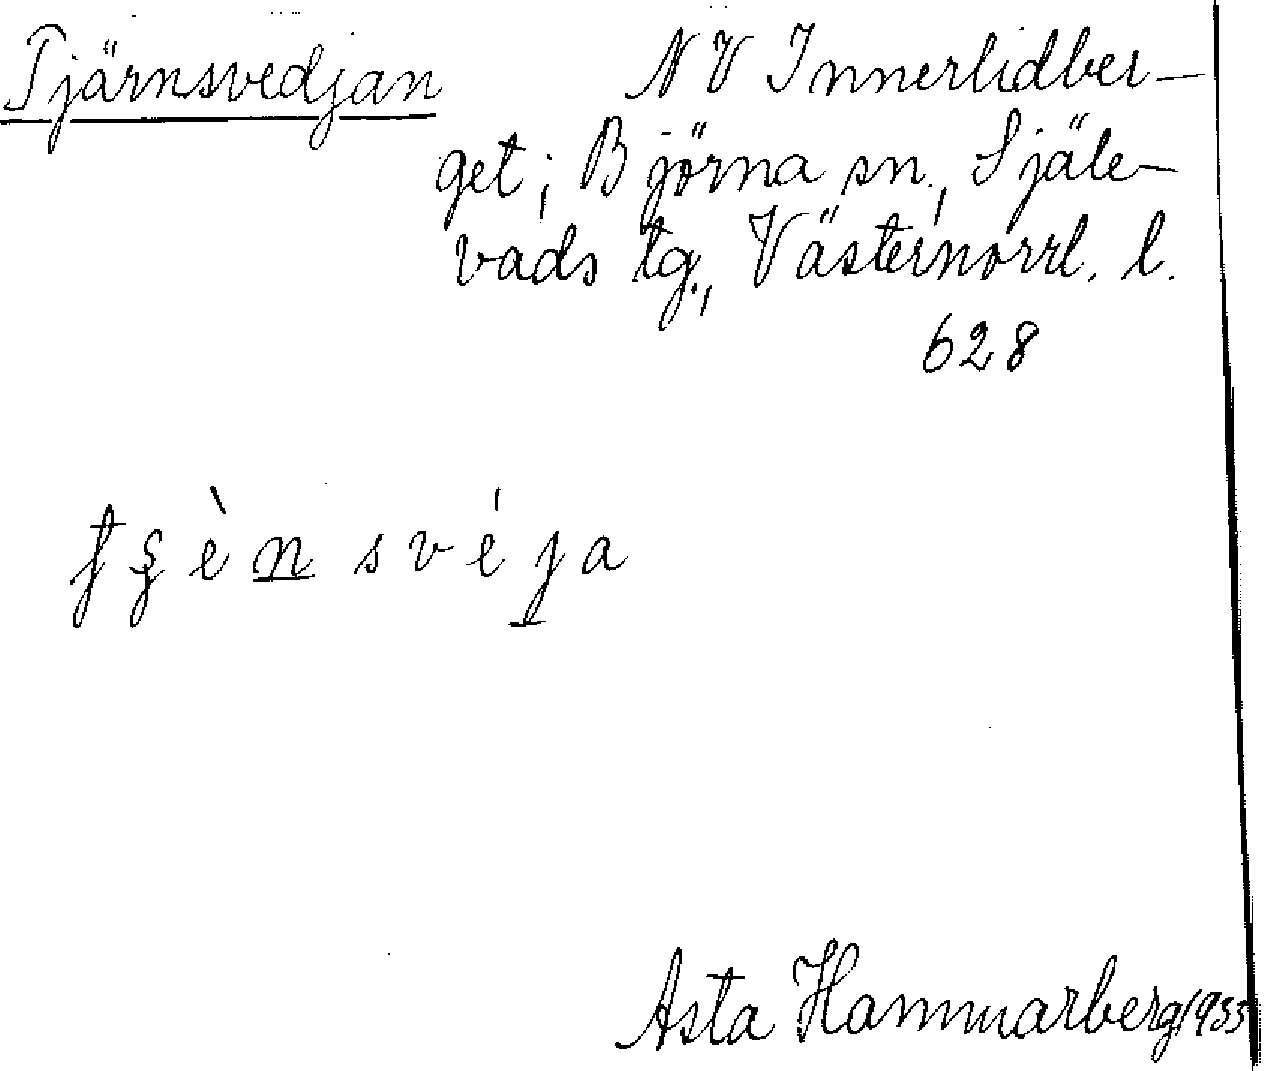 Tjärnsvedjan NV Innerlidber-
get; Björna sn, Själe-
vads tg., Västernorrl. l.
628
svéja
Asta Hammarberg 1935